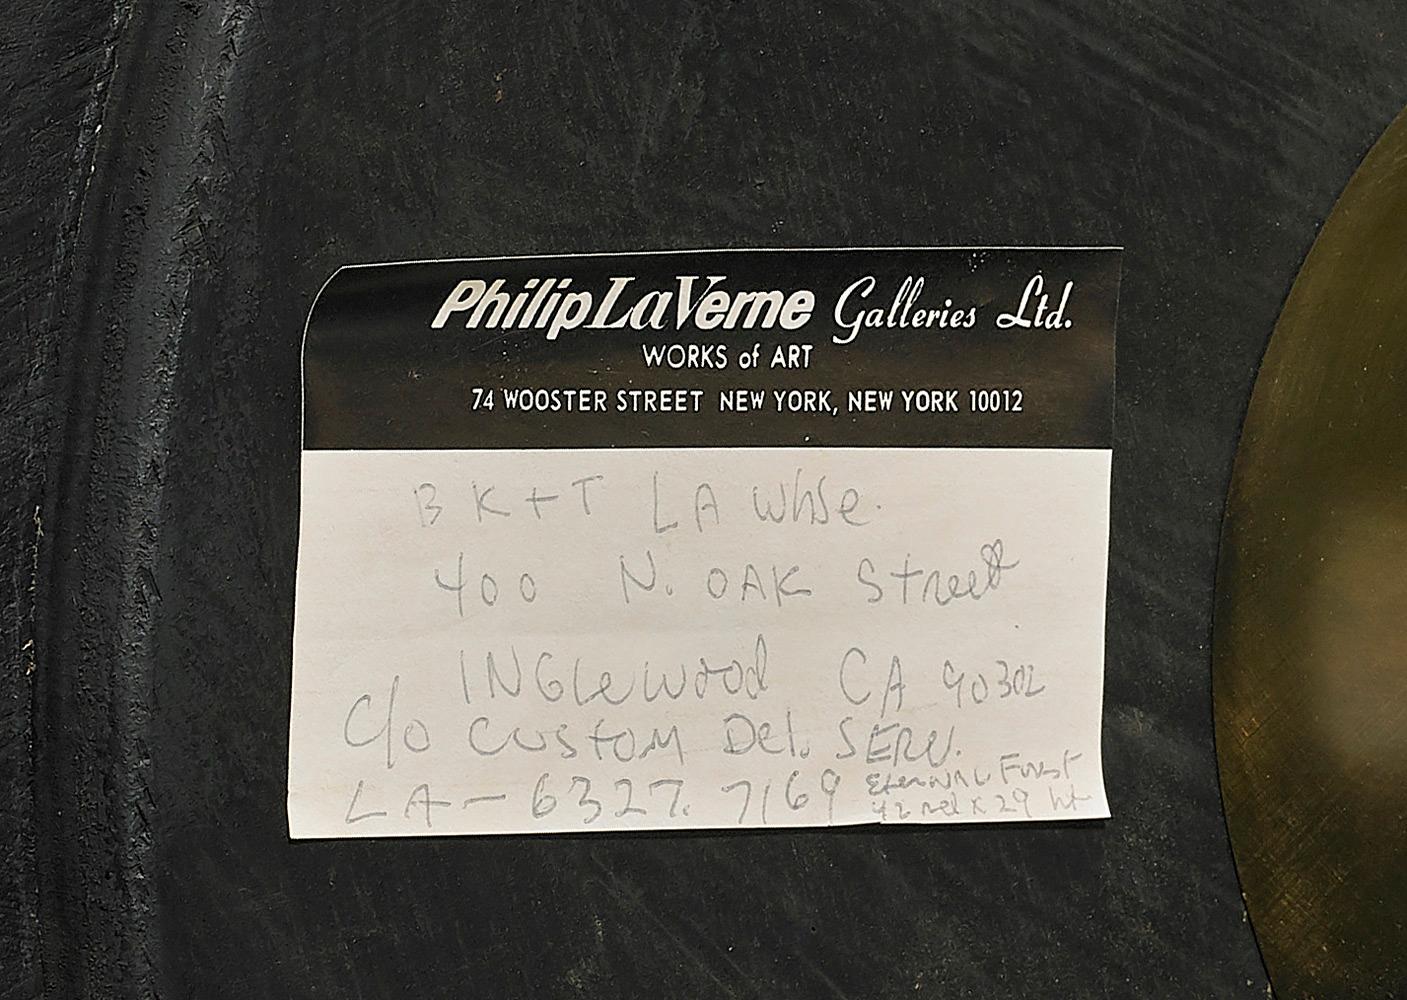 Philip LaVerne Galleries Ltd.
WORKS of ART
74 WOOSTER STREET NEW YORK, NEW YORK 10012
B K+T LA Whse.
400 N. OAK Street
INGlewood CA 90302
c/o CUSTOM Del. SERV.
LA - 6327. 7169
Eternal Forest
42 x 29 ht